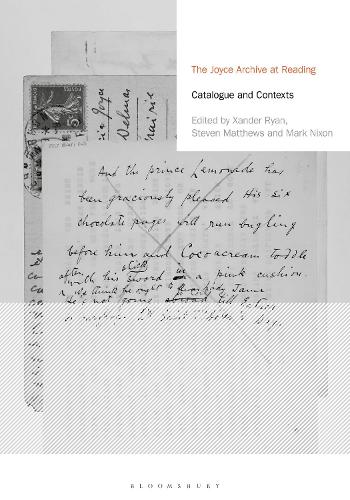 The Joyce Archive at Reading
Catalogue and Contexts
Edited by Xander Ryan,
Steven Matthews and Mark Nixon
Joyce
Delmas
And the prince Lemonade has
been graciously pleased His six
chocolate pages will run bugling
before him and Cococream toddle
after with his sword stick in a pink cushion.
We think he ought to
till Easter
BLOOMSBURY